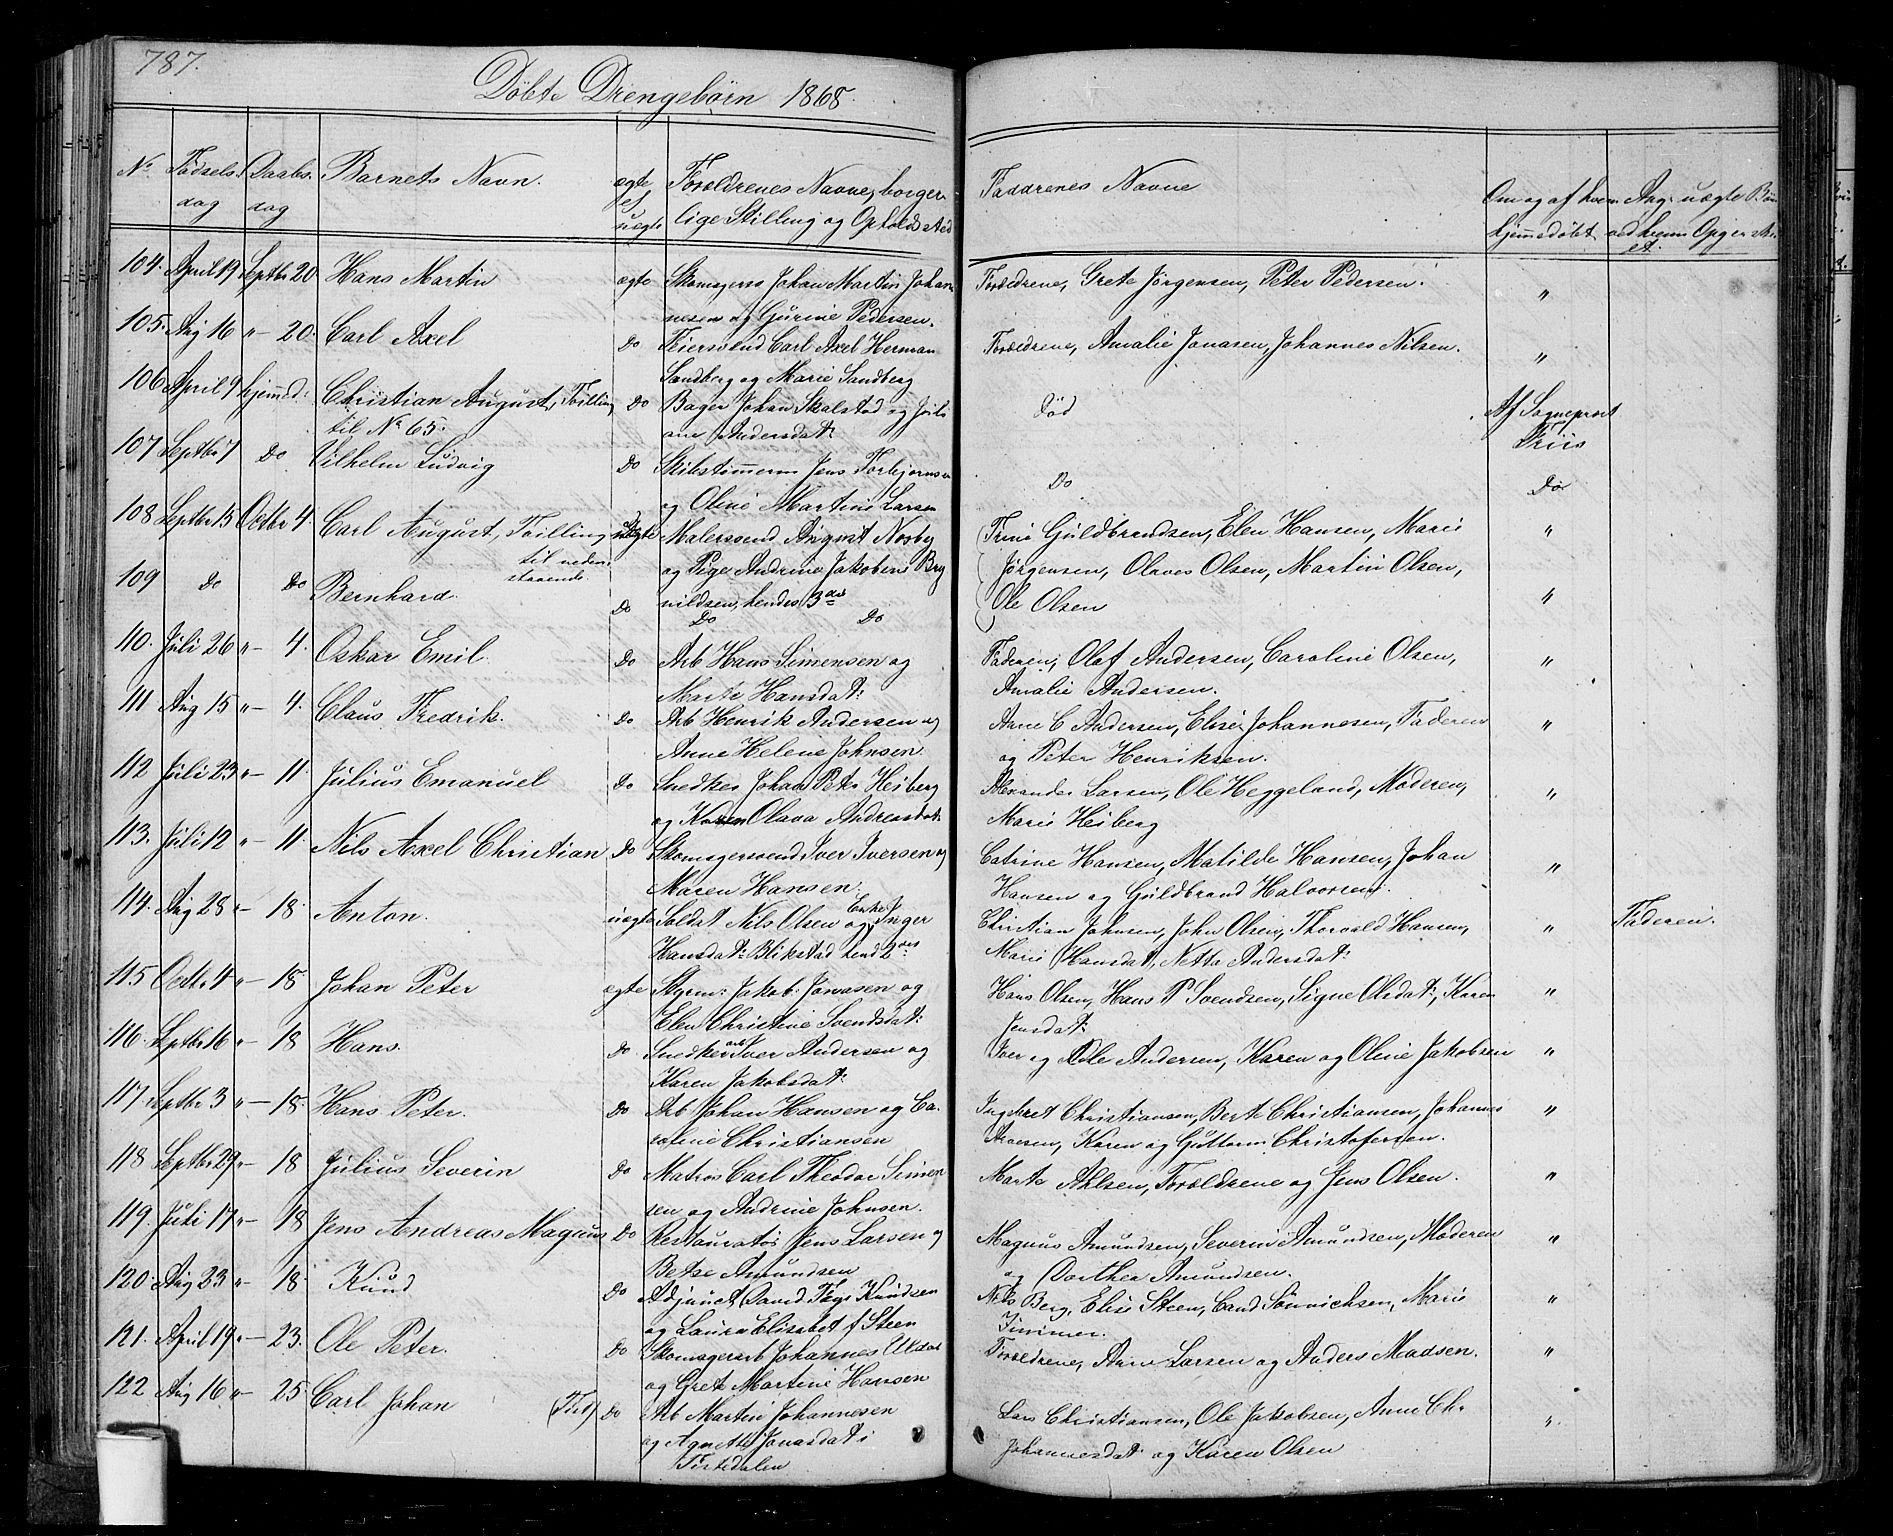 787.
Döbte Drengebörn 1868.
No Födsels dag Daabs dag Barnets Navn. ægte el uægte Forældrenes Navne, borgerlige Stilling og Opholdssted Faddrenes Navne Om og af hvem hjemmedöbt Ang: uægte Börn ved hvem Opgen er sket.
104. April 19 Septbr 20. Hans Martin ægte Skomagersv Johan Martin Johannesen og Gurine Pedersen. Forældrene, Grete Jörgensen, Peter Pedersen. "
105. Aug 16 " - 20. Carl Axel Do Feiersvend Carl Axel Herman Sandberg og Marie Sandberg Forældrene, Amalie Jonasen, Johannes Nilsen. "
106 April 9 hjemmed: Christian August, Tvilling til No 65. Do Bager Johan Skalstad og Juliane Andersdat: Död Af Sogneprest Friis
107 Septbr 7 Do Vilhelm Ludvig Do Skibstömmerm Jens Torbjornsen og Oline Martine Larsen Do Do
108 Septbr 15 Octbr 4. Carl August, Tvilling til nedenstaaende. uægte Malersvend August Norby og Pige Andrine Jakobine Bry nildsen, hendes 3die { Trine Guldbrandsen, Elen Hansen, Marie Jörgensen, Olaves Olsen, Martin Olsen, Ole Olsen "
109 Do Do Bernhard. Do Do Do "
110. Juli 26 " - 4. Oskar Emil. Do Arb Hans Simensen og Marte Hansdat: Faderen, Olaf Andersen, Caroline Olsen, Amalie Andersen. "
111 Aug 15 " - 4. Claus Fredrik. Do Arb Henrik Andersen og Anne Helene Johnsen. Anne C Andersen, Elise Johannesen, Faderen og Peter Henriksen. "
112 Juli 23 " - 11. Julius Emanuel Do Snedker Johan Peter Heiberg og Karen Olava Andreasdat: Alexander Larsen, Ole Heggeland, Moderen, Marie Heiberg "
113. Juli 12 " - 11. Nils Axel Christian Do Skomagersvend Iver Iversen og Maren Hansen. Catrine Hansen, Matilde Hansen, Johan Hansen og Guldbrand Halvorsen. "
114. Aug 28 " - 18. Anton. uægte Soldat Nils Olsen og Enke Inger Hansdat: Blikstad hend 2den Christian Johnsen, John Olsen, Thorvald Hansen, Marie Hansdat, Netta Andersdat: " Faderen.
115 Octbr 4 " - 18. Johan Peter ægte Styrm: Jakob Jonasen og Elen Christine Svendsdat: Hans Olsen, Hans P Svendsen, Signe Olsdat:, Karen Jensdat: "
116. Septbr 16 " - 18 Hans. Do Snedkerarb Iver Andersen og Karen Jakobsdat: Iver og Andersen, Karen og Oline Jakobsen "
117. Septbr 3 " - 18. Hans Peter. Do Arb Johan Hansen og Caroline Christiansen Ingebret Christiansen, Berte Christiansen, Johannes Karen og Guttorm Christofersen. "
118 Septbr 29 " - 18 Julius Severin Do Matros Carl Theodor Simensen og Andrine Johnsen. Marte Ahlsen, Forældrene og Jens Olsen. "
119. Juli 17 " - 18 Jens Andreas Magnus Do Restauratör Jens Larsen og Betse Amundsen Magnus Amundsen, Severin Amundsen, Moderen og Dorthea Amundsen. "
120. Aug 23 " - 18. Knud Do Adjunct David Knudsen og Laura Elisabet f Steen Nils Berg, Elise Steen, Cand Marie "
121. April 19 " - 23. Ole Peter. Do Skomagerarb Johannes og Grete Martine Hansen Forældrene, Anne Larsen og Anders Madsen. "
122 Aug 16 " - 25. Carl Johan Do Arb Martin Johannesen og Agnethe Jonasdat i Tistedalen Lars Christiansen, Ole Jakobsen, Anne Ch. Johannesdat: og Karen Olsen "